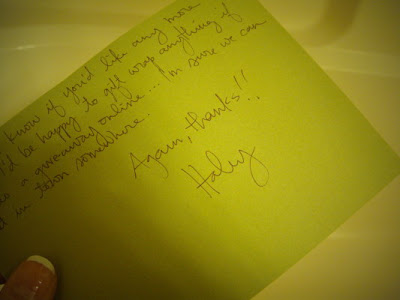 know if you'd like any more
I'd be happy to gift wrap anything if
a giveaway online... I'm sure we can
in town somewhere.
Again, thanks!!
Haley